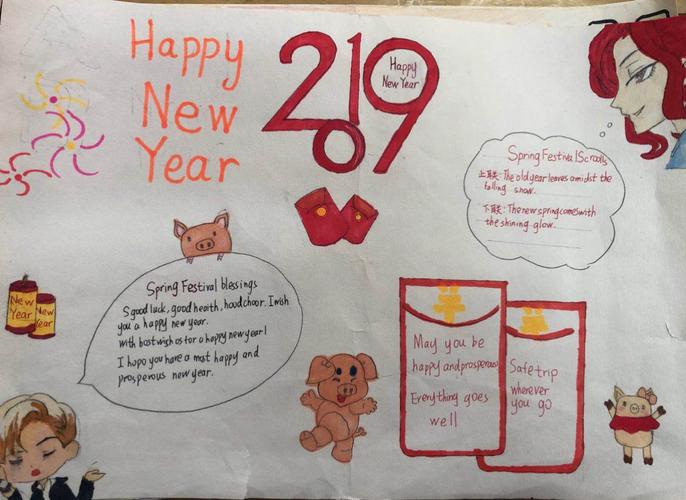 Happy
New
Year
2019
Happy
New Year
Spring Festival Scrolls
上联: The old year leaves amidst the
falling snow.
下联: The new spring comes with
the shining glow.
Spring Festival blessings
Sgood luck, good health, hood choor. I wish
you a happy new year.
With bost wish os for a happy new year!
I hopo you have a most happy and
prosperous new year.
New
Year
New
Year
May you be
happy and prosperous
Everything goes
well
Safe trip
wherever
you go